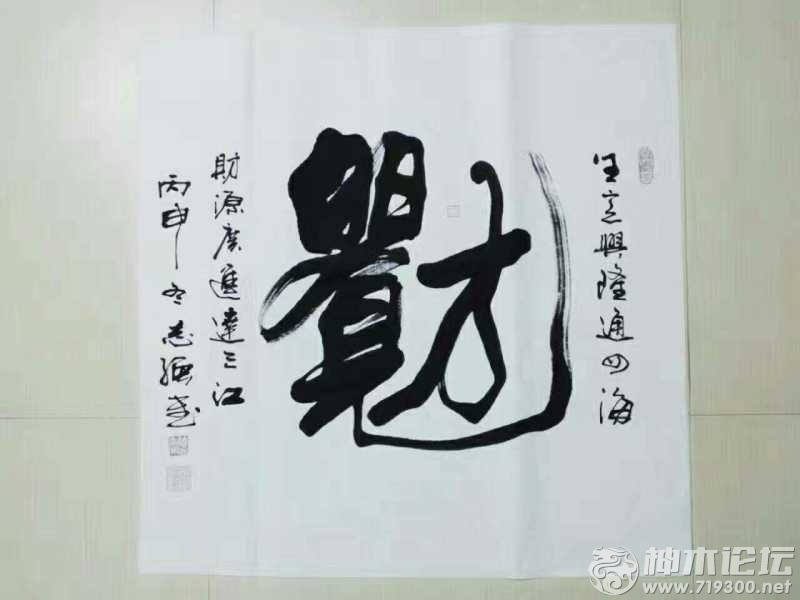 生意興隆通四海
財源廣進達三江
丙申冬志强書
神木论坛
www.719300.net